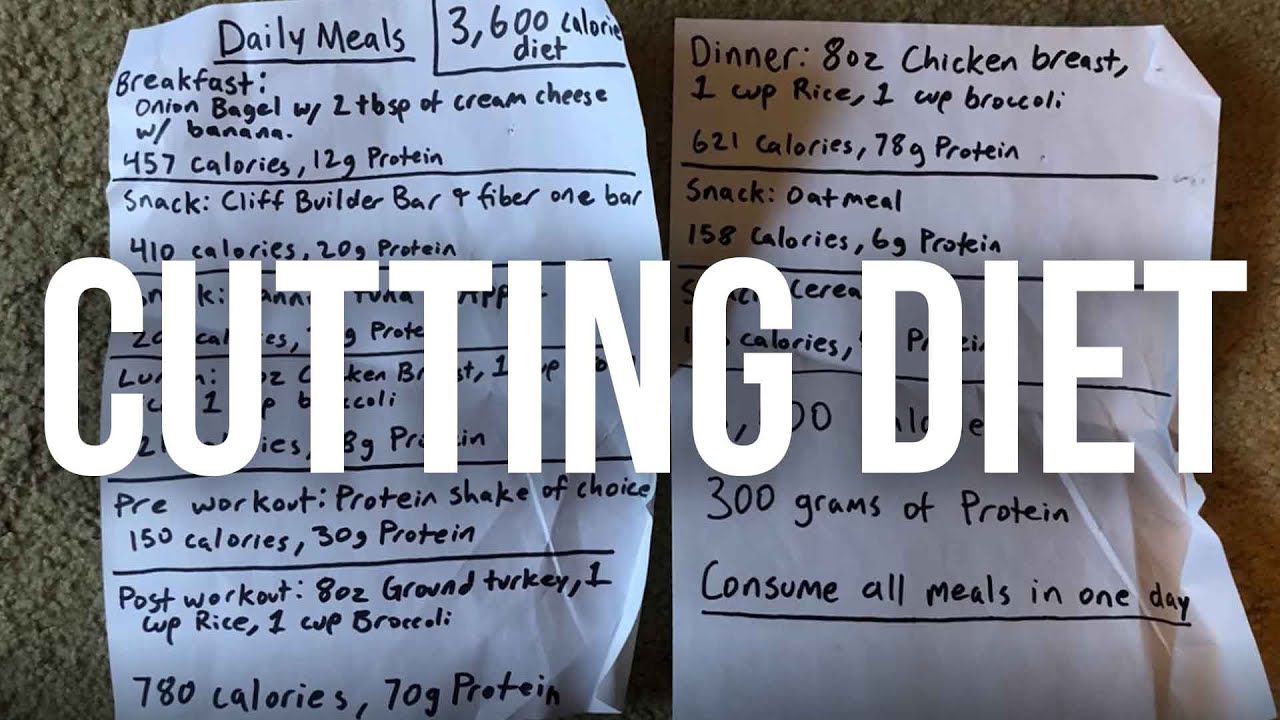 Daily Meals
3,600 calorie
diet
Breakfast:
Onion Bagel w/ 2 tbsp of cream cheese
w/ banana.
457 calories, 12g Protein
Snack: Cliff Builder Bar & fiber one bar
410 calories, 20g Protein
tuna
Chicken Breast, 1
1 cup broccoli
Pre workout: Protein shake of choice
150 calories, 30g Protein
Post workout: 8oz Ground turkey, 1
cup Rice, 1 cup Broccoli
780 calories, 70g Protein
Dinner: 8oz Chicken breast,
1 cup Rice, 1 cup broccoli
621 calories, 78g Protein
Snack: Oatmeal
158 calories, 6g Protein
calories, Protein
300 grams of Protein
Consume all meals in one day
CUTTING DIET